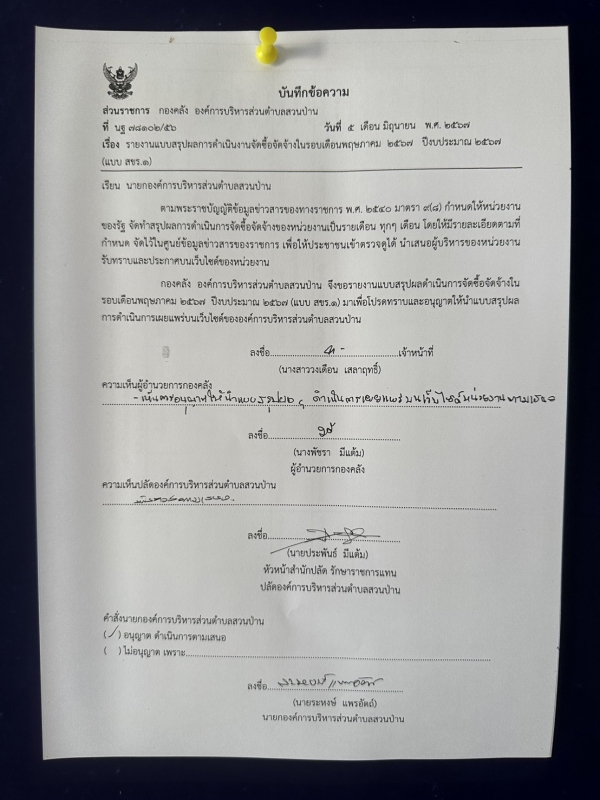 บันทึกข้อความ
ส่วนราชการ กองคลัง องค์การบริหารส่วนตำบลสวนป่าน
ที่ นฐ ๗๘๑๐๒/๕๖ วันที่ ๕ เดือน มิถุนายน พ.ศ. ๒๕๖๗
เรื่อง รายงานแบบสรุปผลการดำเนินงานจัดซื้อจัดจ้างในรอบเดือนพฤษภาคม ๒๕๖๗ ปีงบประมาณ ๒๕๖๗
(แบบ สขร.๑)
เรียน นายกองค์การบริหารส่วนตำบลสวนป่าน
ตามพระราชบัญญัติข้อมูลข่าวสารของทางราชการ พ.ศ. ๒๕๔๐ มาตรา ๙(๘) กำหนดให้หน่วยงาน
ของรัฐ จัดทำสรุปผลการดำเนินการจัดซื้อจัดจ้างของหน่วยงานเป็นรายเดือน ทุกๆ เดือน โดยให้มีรายละเอียดตามที่
กำหนด จัดไว้ในศูนย์ข้อมูลข่าวสารของราชการ เพื่อให้ประชาชนเข้าตรวจดูได้ นำเสนอผู้บริหารของหน่วยงาน
รับทราบและประกาศบนเว็บไซต์ของหน่วยงาน
กองคลัง องค์การบริหารส่วนตำบลสวนป่าน จึงขอรายงานแบบสรุปผลดำเนินการจัดซื้อจัดจ้างใน
รอบเดือนพฤษภาคม ๒๕๖๗ ปีงบประมาณ ๒๕๖๗ (แบบ สขร.๑) มาเพื่อโปรดทราบและอนุญาตให้นำแบบสรุปผล
การดำเนินการเผยแพร่บนเว็บไซต์ขององค์การบริหารส่วนตำบลสวนป่าน
ลงชื่อ เจ้าหน้าที่
(นางสาววงเดือน เสลาฤทธิ์)
ความเห็นผู้อำนวยการกองคลัง
- เห็นควรอนุญาตให้นำแบบสรุปผลฯ ดำเนินการเผยแพร่บนเว็บไซต์หน่วยงาน
ลงชื่อ
(นางพัชรา มีแต้ม)
ผู้อำนวยการกองคลัง
ความเห็นปลัดองค์การบริหารส่วนตำบลสวนป่าน
ลงชื่อ
(นายประพันธ์ มีแต้ม)
หัวหน้าสำนักปลัด รักษาราชการแทน
ปลัดองค์การบริหารส่วนตำบลสวนป่าน
คำสั่งนายกองค์การบริหารส่วนตำบลสวนป่าน
(/) อนุญาต ดำเนินการตามเสนอ
( ) ไม่อนุญาต เพราะ
ลงชื่อ
(นายระหงษ์ แพรอัตถ์)
นายกองค์การบริหารส่วนตำบลสวนป่าน